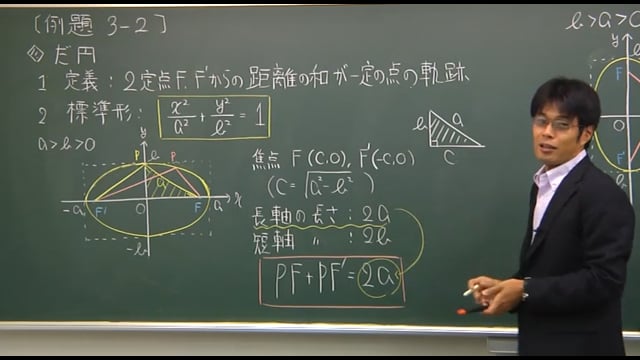 〔例題 3-2〕
◎ だ円
1 定義：2定点F, F'からの距離の和が一定の点の軌跡
2 標準形： x²/a² + y²/b² = 1
a>b>0
y
P b P
a
-a F' O F a x
-b
焦点 F(C,0), F'(-C,0)
(C=√a²-b²)
長軸の長さ：2a
短軸 〃 ：2b
PF+PF'=2a
b a
C
b>a>0
y
b
F
O
F'